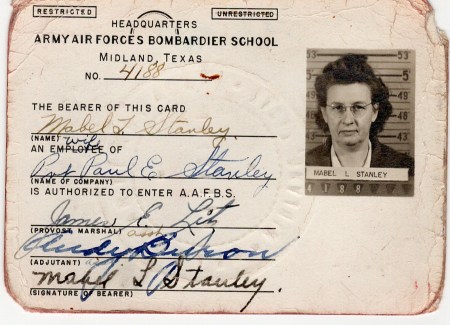 RESTRICTED UNRESTRICTED
HEADQUARTERS
ARMY AIR FORCES BOMBARDIER SCHOOL
MIDLAND TEXAS
NO. 4188
THE BEARER OF THIS CARD
Mabel L Stanley
(NAME) wife
AN EMPLOYEE OF
Pvt Paul E. Stanley
(NAME OF COMPANY)
IS AUTHORIZED TO ENTER A.A.F.B.S.
James E. Litz
(PROVOST MARSHAL) asst
(ADJUTANT)
Mabel L Stanley.
(SIGNATURE OF BEARER)
53 53
5 5
49 49
48
MABEL L STANLEY
4188